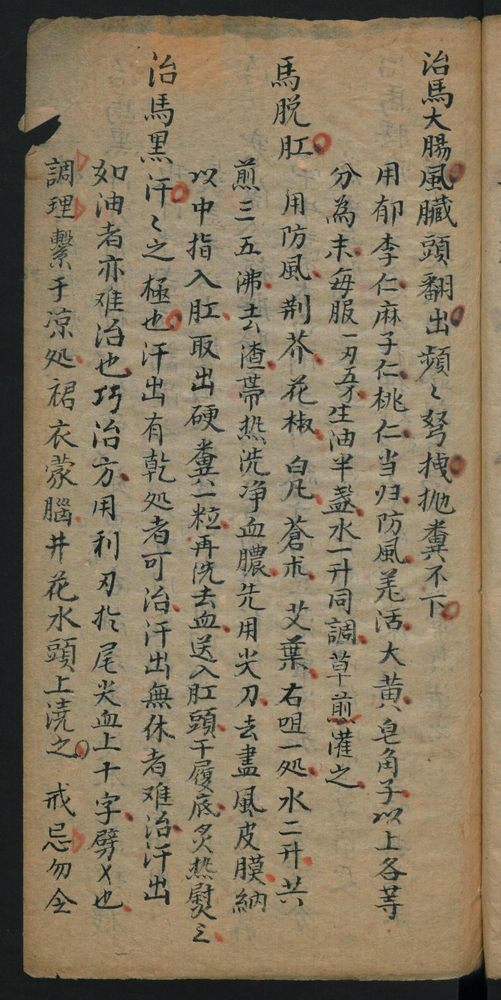 治馬大腸風臟頭翻出頻〻弩拽抛糞不下
用郁李仁麻子仁桃仁当归防風羌活大黄皂角子以上各等
分為末每服一刄五才生油半盞水一升同調草煎灌之
馬脱肛 用防風荆芥花椒白凡蒼朮艾葉右咀一処水二升共
煎三五沸去渣帶热洗净血膿先用尖刀去盡風皮膜納
以中指入肛取出硬糞一粒再洗去血送入肛頭于履底炙热熨之
治馬黑汗〻之極也汗出有乾処者可治汗出無休者难治汗出
如油者亦难治也巧治方用利刃扵尾尖血上十字劈乂也
調理繫于凉処裙衣蒙腦井花水頭上澆之 戒忌勿令